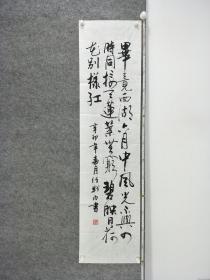 畢竟西湖六月中風光不與四
時同接天蓮葉無窮碧映日荷
花別樣红
辛卯年春月
书